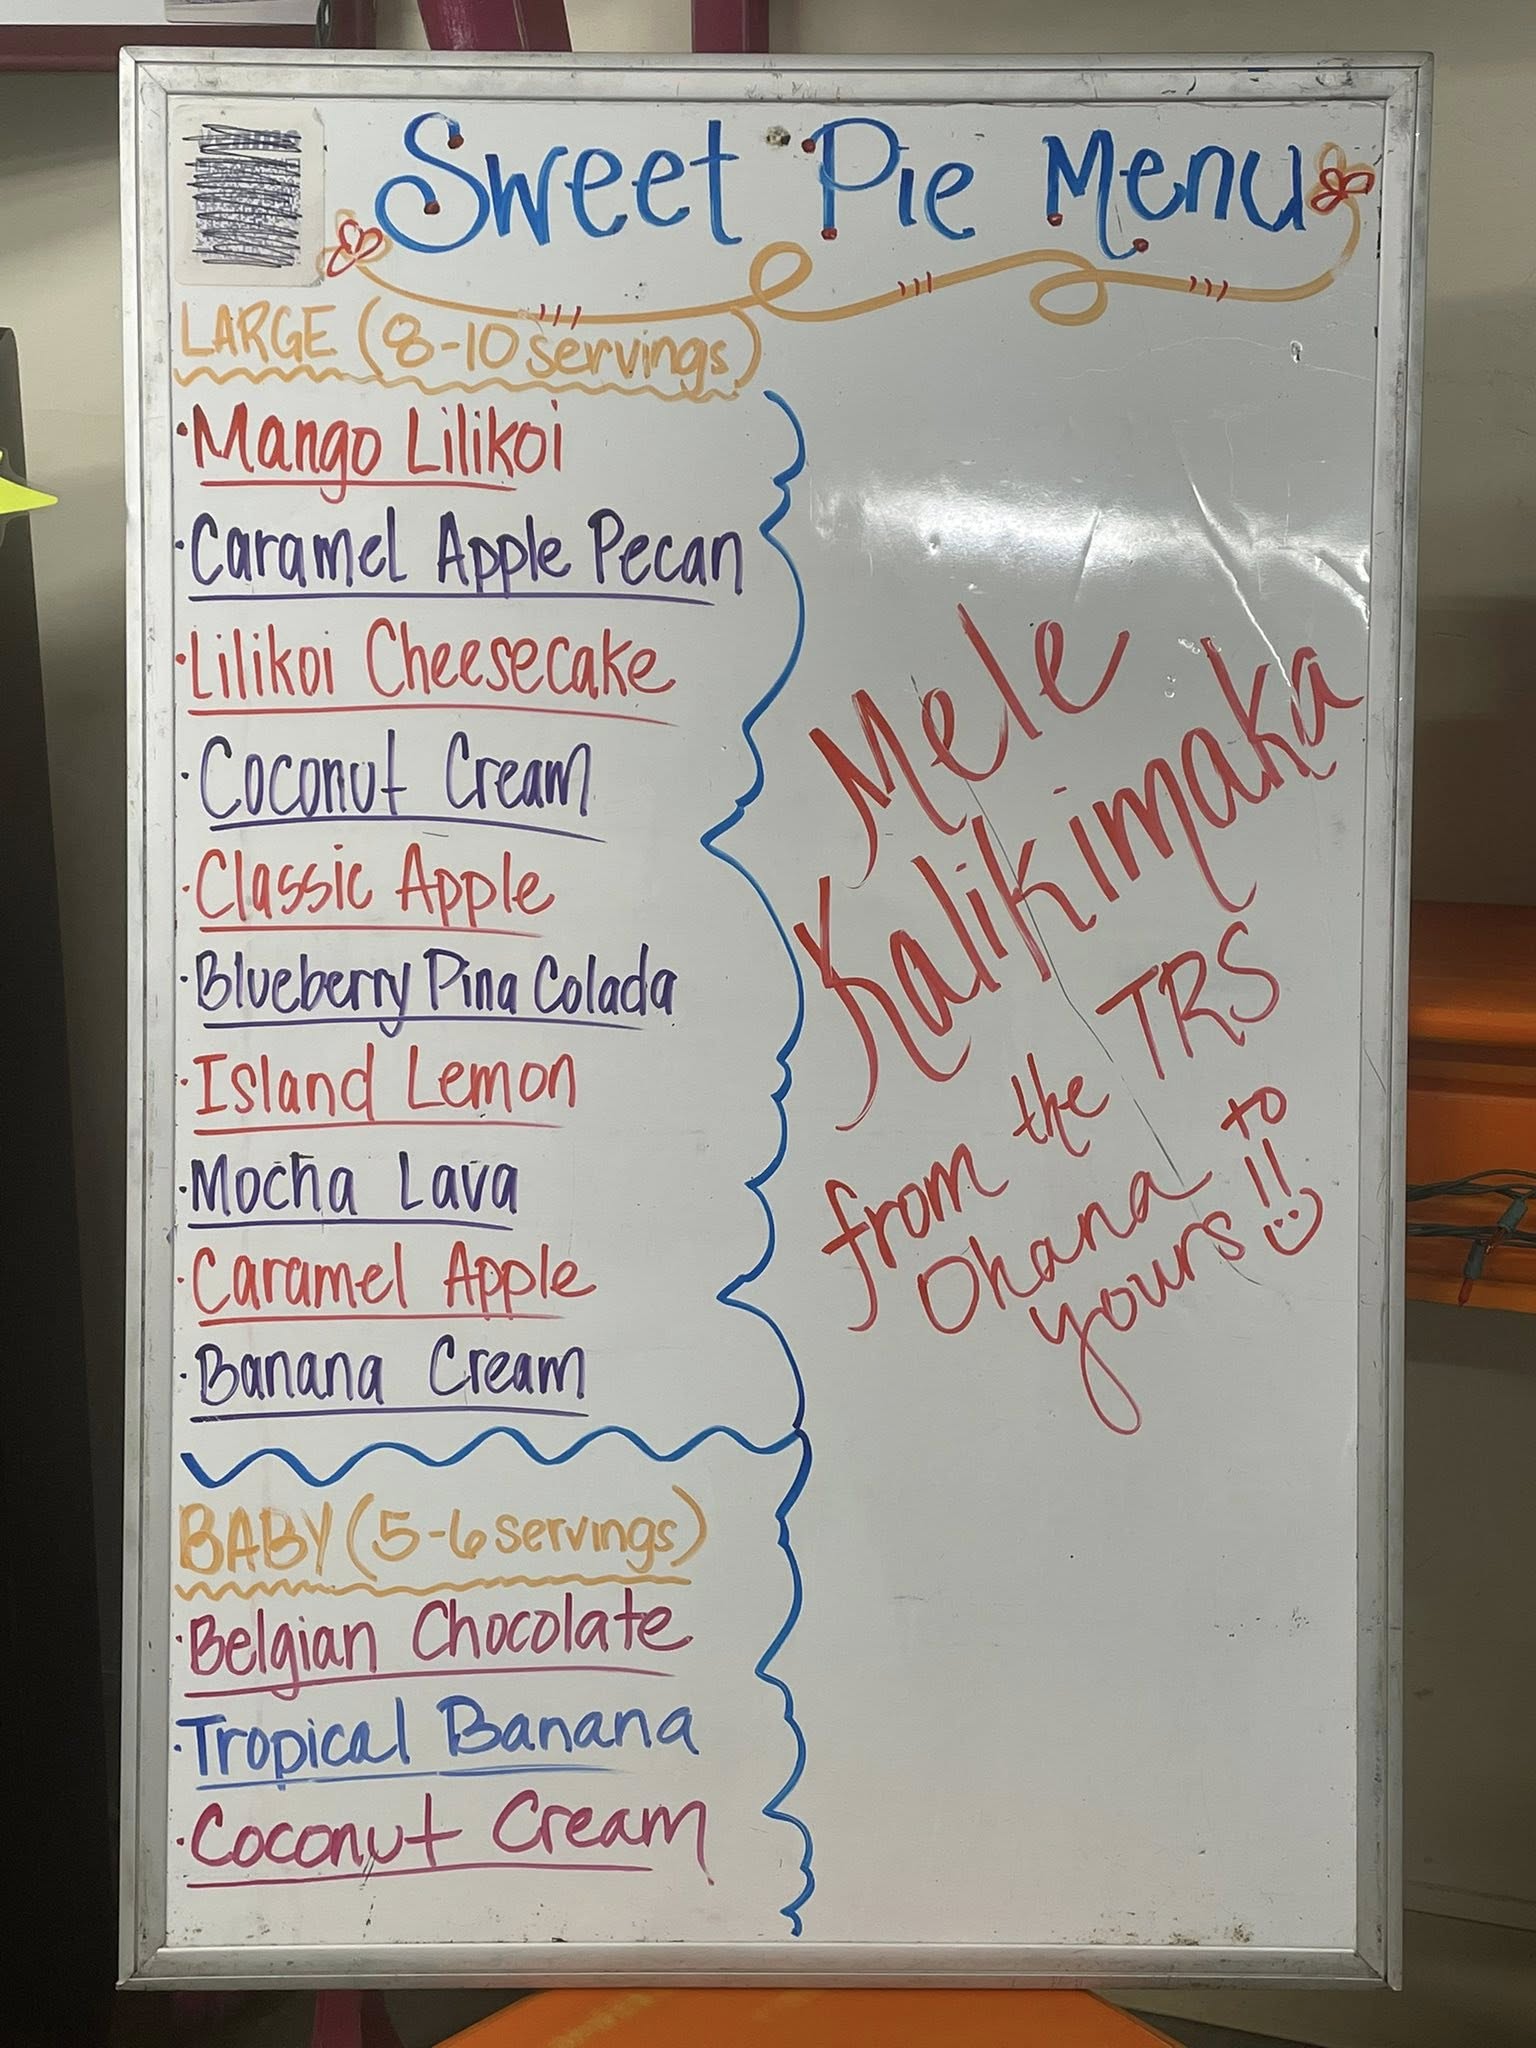 Sweet Pie Menu
LARGE (8-10 servings)
·Mango Lilikoi
·Caramel Apple Pecan
·Lilikoi Cheesecake
·Coconut Cream
·Classic Apple
·Blueberry Pina Colada
·Island Lemon
·Mocha Lava
·Caramel Apple
·Banana Cream
BABY (5-6 servings)
·Belgian Chocolate
·Tropical Banana
·Coconut Cream
Mele
Kalikimaka
from the TRS
Ohana to
yours!!